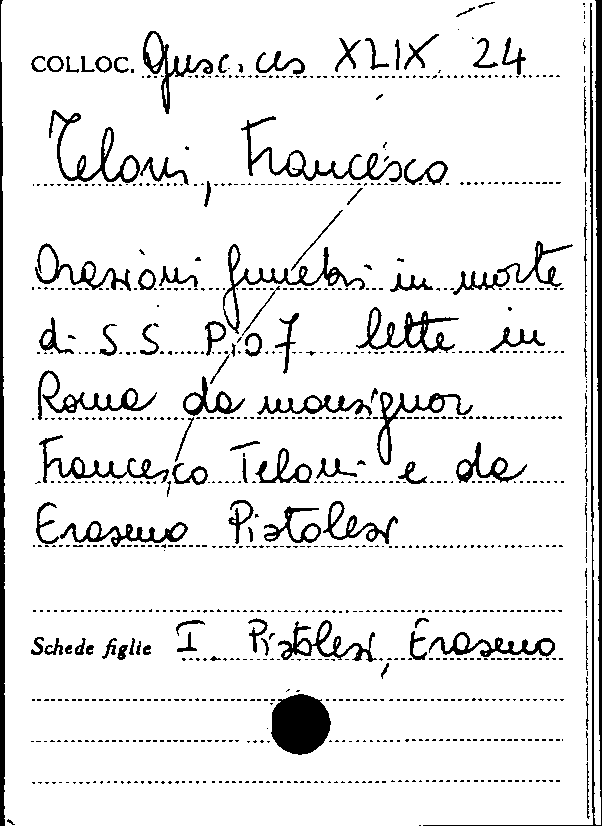 COLLOC. Gusc. ces XLIX 24
Teloni, Francesco
Orazioni funebri in morte
di S.S. Pio 7. lette in
Roma da monsignor
Francesco Teloni e da
Erasmo Pistolesi
Schede figlie I. Pistolesi, Erasmo